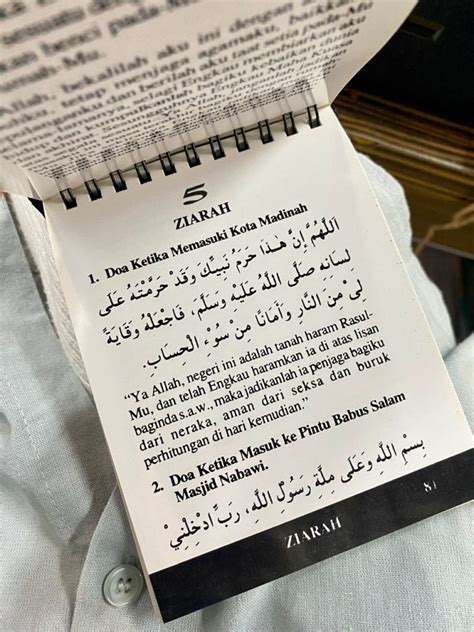 benci pada-M
mah-Mu
Allah, bekalilah aku ini dengan
tetap menjaga agamaku,
dan berilah aku taat setia pada
5
ZIARAH
1. Doa Ketika Memasuki Kota Madinah
اَللّٰهُمَّ إِنَّ هٰذَا حَرَمُ نَبِيِّكَ وَقَدْ حَرَّمْتَهُ عَلَى
لِسَانِهِ صَلَّى اللّٰهُ عَلَيْهِ وَسَلَّمَ، فَاجْعَلْهُ وِقَايَةً
لِيْ مِنَ النَّارِ وَأَمَانًا مِنْ سُوْءِ الْحِسَابِ.
“Ya Allah, negeri ini adalah tanah haram Rasul-
Mu, dan telah Engkau haramkan ia di atas lisan
baginda s.a.w., maka jadikanlah ia penjaga bagiku
dari neraka, aman dari seksa dan buruk
perhitungan di hari kemudian.”
2. Doa Ketika Masuk ke Pintu Babus Salam
Masjid Nabawi.
بِسْمِ اللّٰهِ وَعَلَى مِلَّةِ رَسُوْلِ اللّٰهِ، رَبِّ ادْخِلْنِيْ
ZIARAH